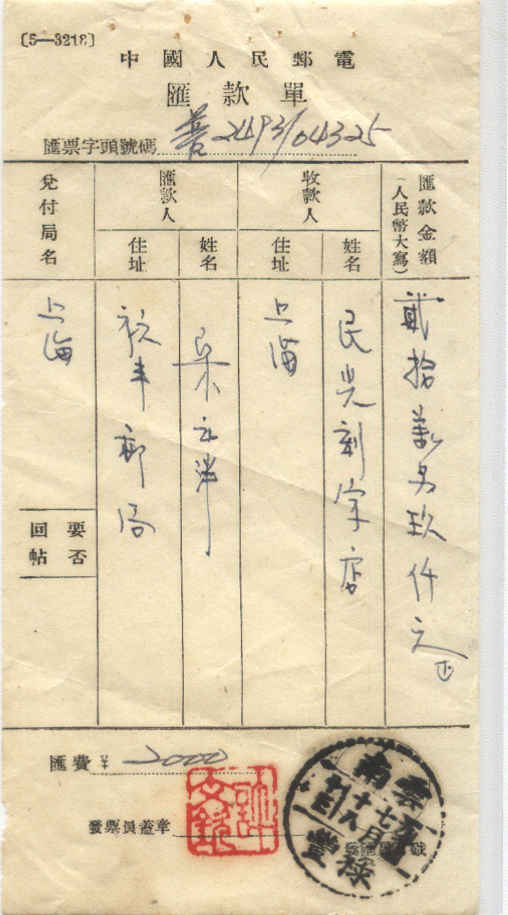 〔5—3218〕
中國人民郵電
匯款單
匯票字頭號碼 善2493/04325
匯款金額
（人民幣大寫）
貳拾萬另玖仟元正
收款人
姓名
民光刻字店
住址
上海
匯款人
姓名
住址
祿丰郵局
兌付局名
上海
要否
回帖
匯費 ¥ 2000
發票員蓋章
戳
雲南
十七月
十八
祿豐